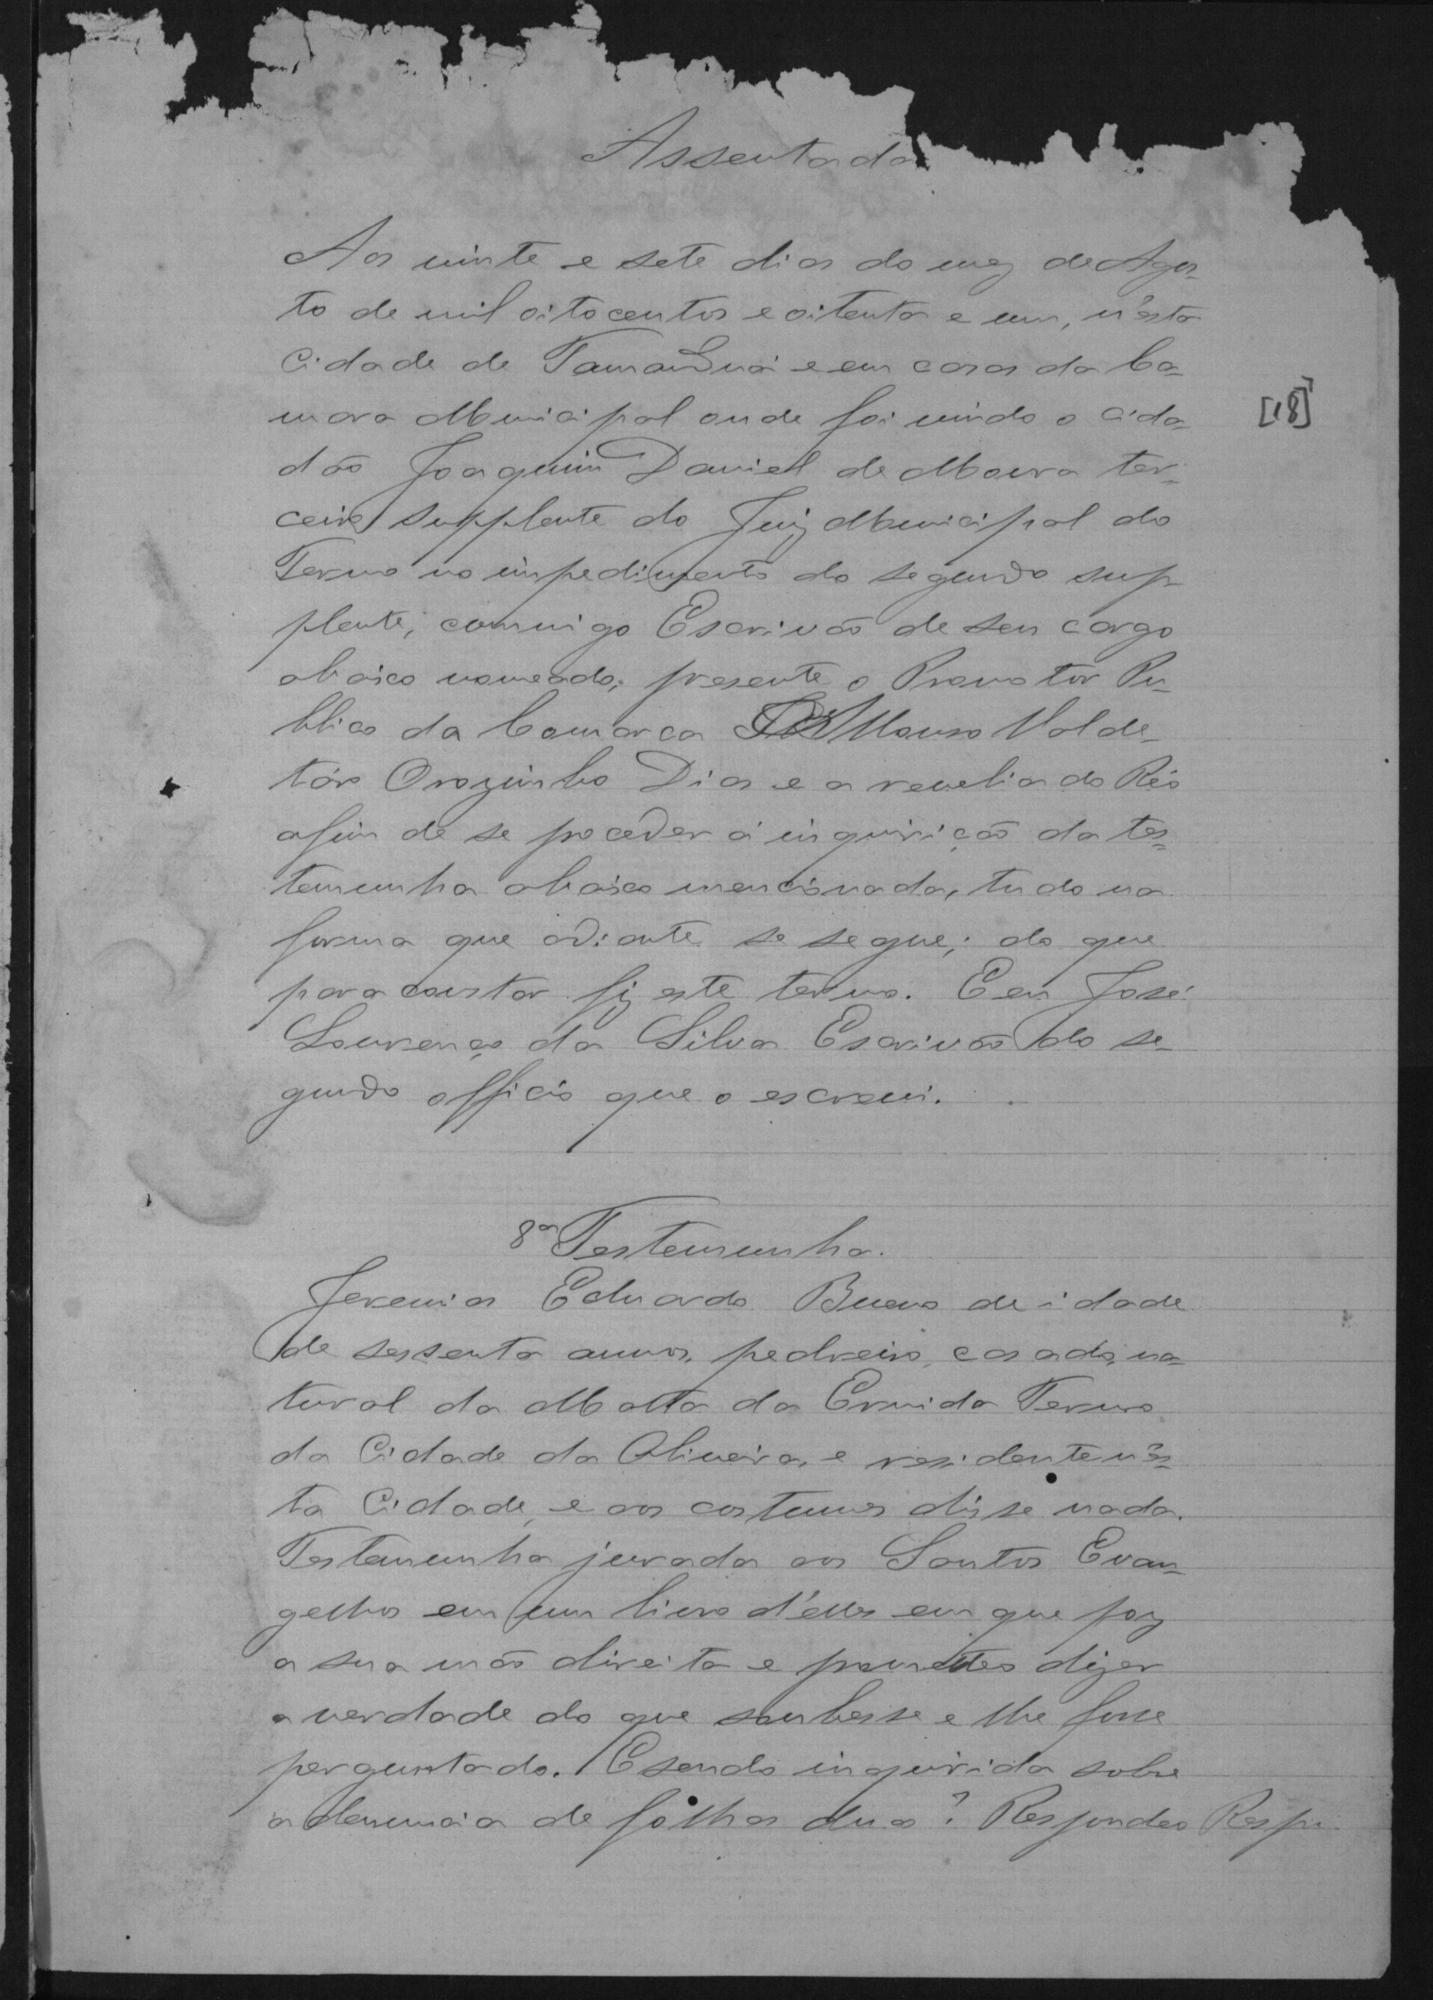 Assentada
Aos vinte e sete dias do mez de Agos-
to de mil oito centos e oitenta e um, n'esta
Cidade de Tamanduá e em casas da Ca-
mara Municipal onde foi vindo o cida-
[18]
dão Joaquim Daniel de Moura ter-
ceiro supplente do Juiz Municipal do
Termo no impedimento do segundo sup-
plente, commigo Escrivão de seu cargo
abaixo nomeado, presente o Promotor Pu-
blico da Comarca Affonso Valde-
táro Orozimbo Dias e a revelia do Réo
afim de se proceder á inquirição da tes-
temunha abaixo mencionada, tudo na
forma que adiante se segue; do que
para constar fiz este termo. Eu José
Lourenço da Silva Escrivão do se-
gundo officio que o escrevi.
8ª Testemunha.
Jeremias Eduardo Bueno de idade
de sessenta annos, pedreiro, casado, na-
tural da Matta da Ermida Termo
da Cidade da Oliveira, e residente n'es-
ta Cidade, e aos costumes disse nada.
Testemunha jurada aos Santos Evan-
gelhos em um livro d'elles em que poz
a sua mão direita e prometteo dizer
a verdade do que soubesse e lhe fosse
perguntado. E sendo inquirida sobre
a denuncia de folhas duas? Respondeo Respon